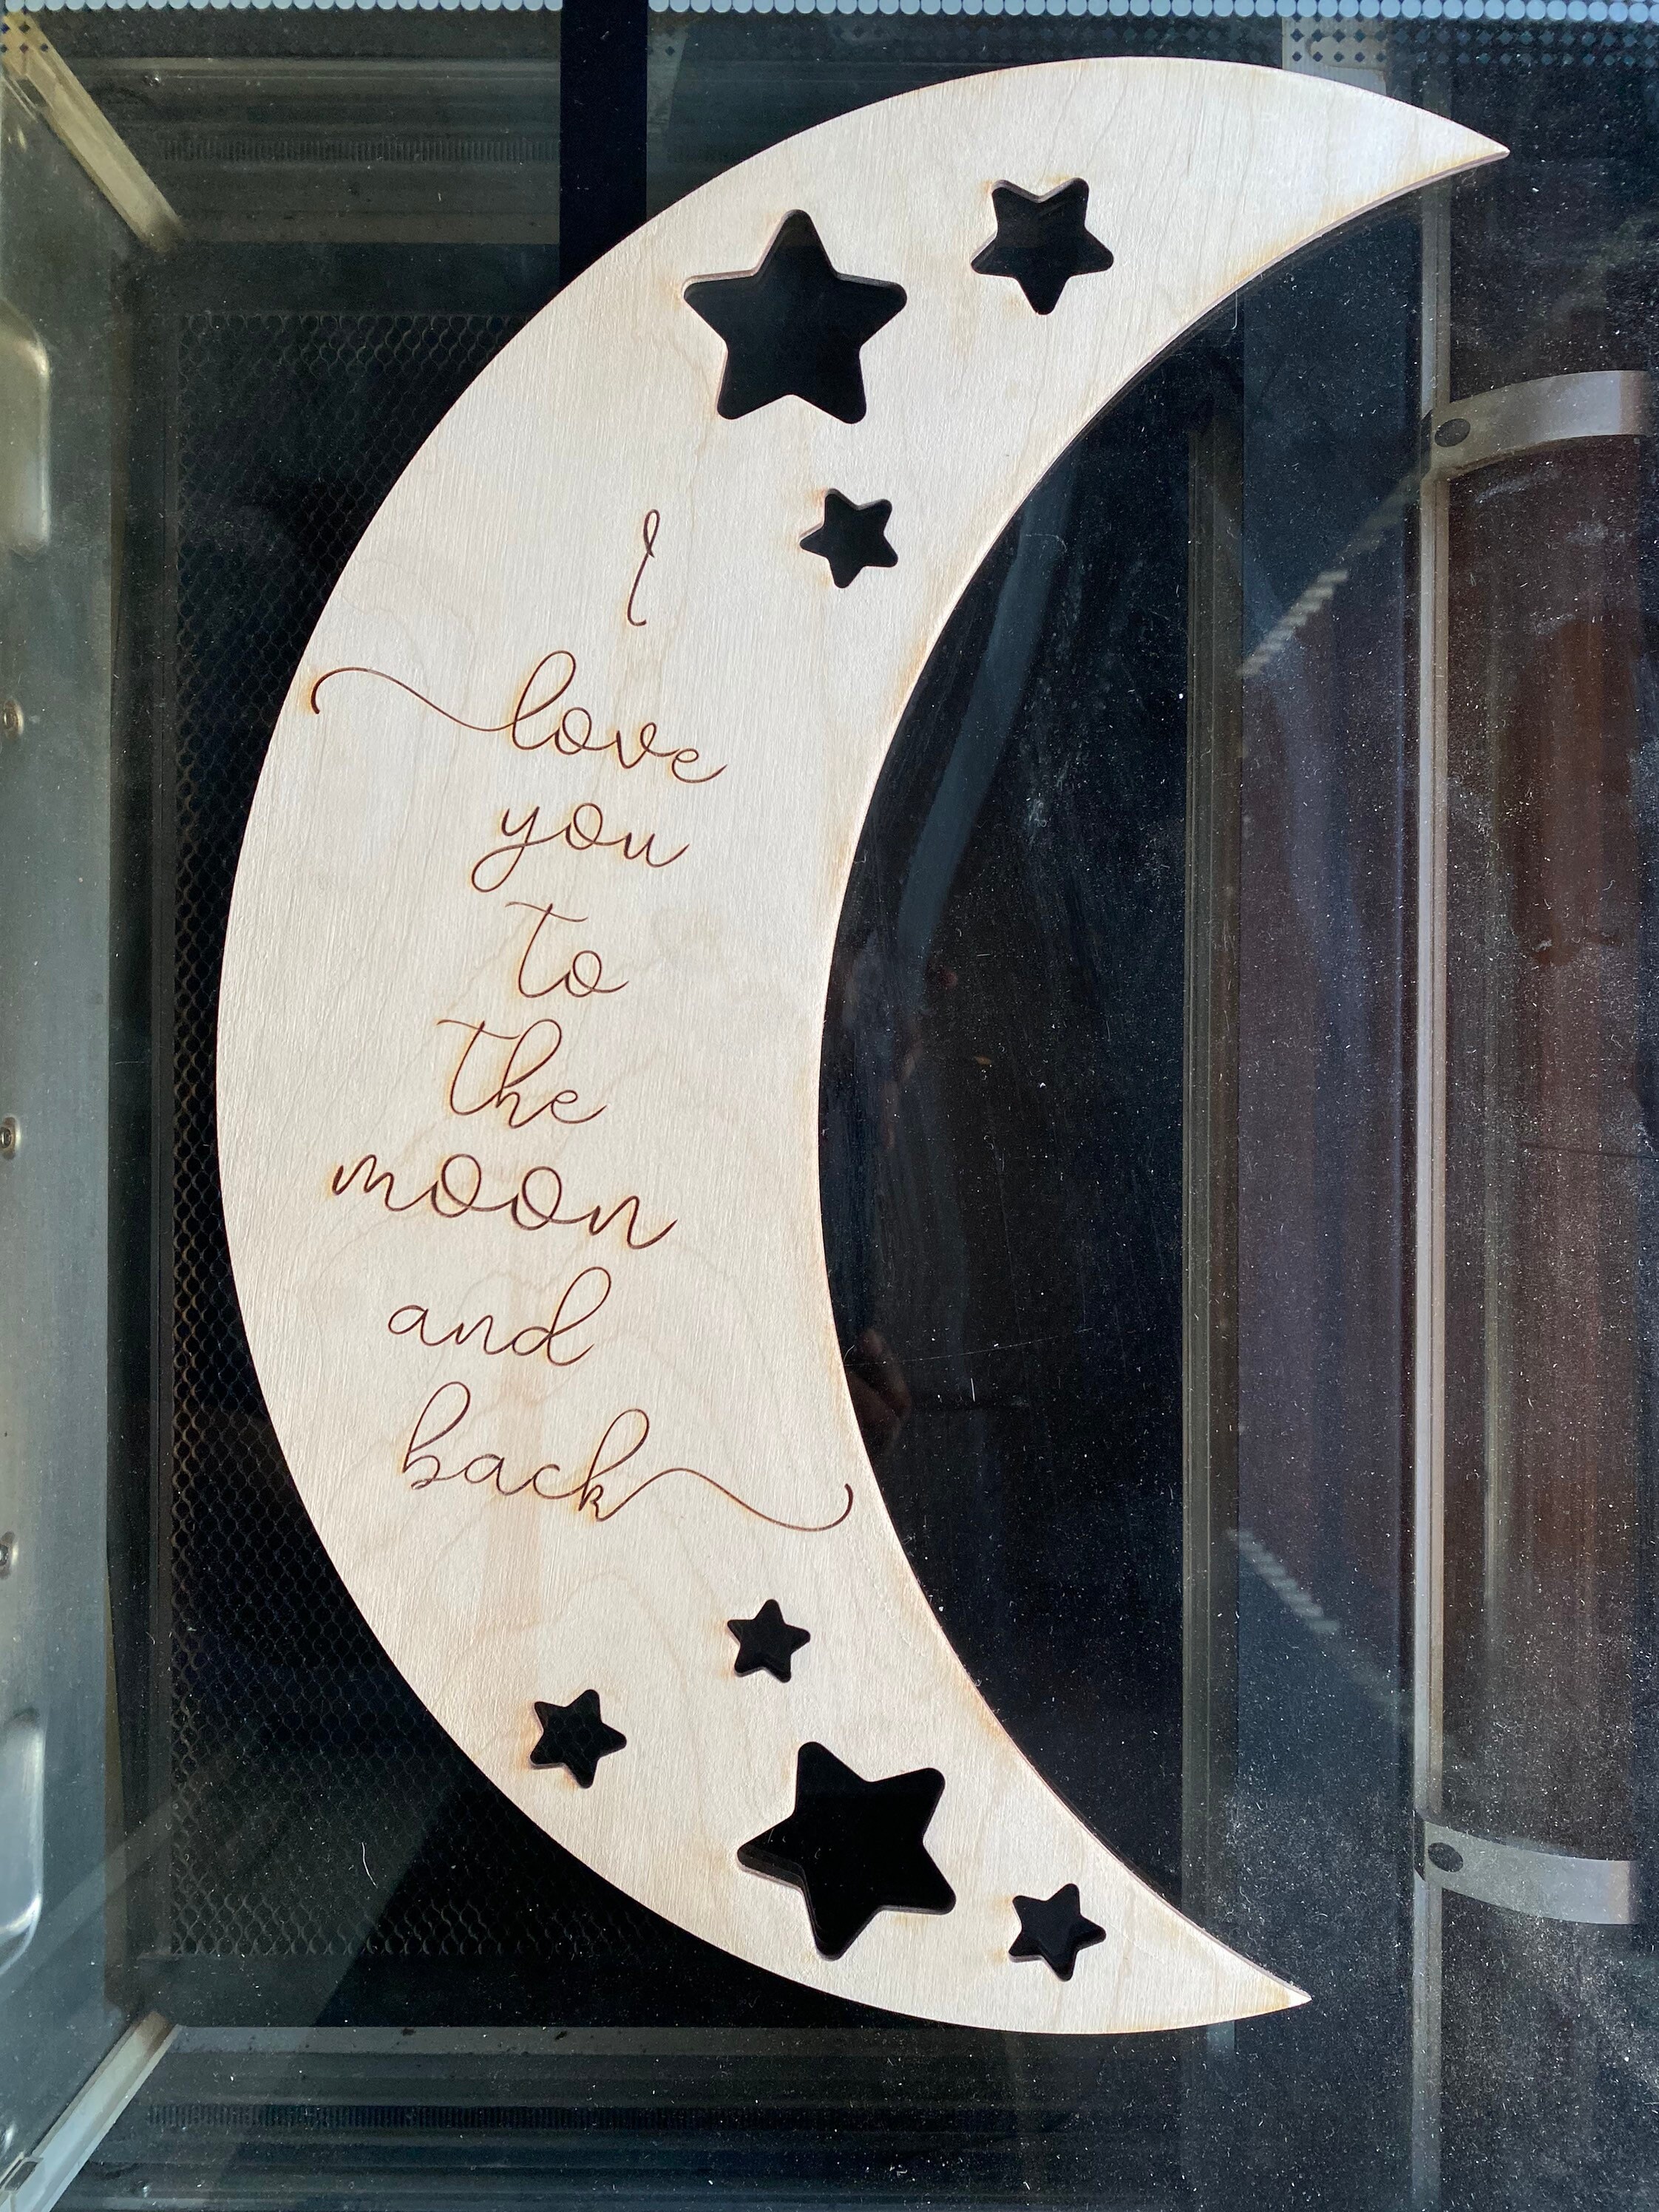 I
love
you
to
the
moon
and
back